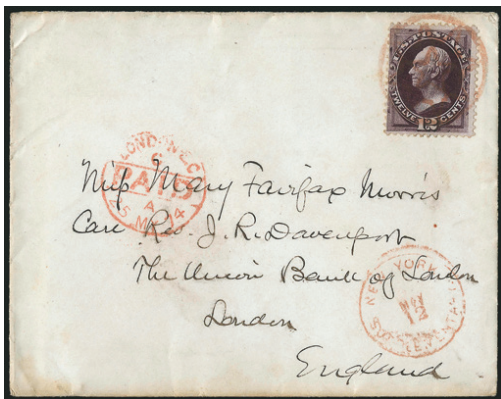 U.S. POSTAGE
TWELVE 12 CENTS
LONDON E.C
6
PAID
A
25 MY 74
Miss Mary Fairfax Morris
Care Rev. J. R. Davenport
The Union Bank of London
London
England
NEW YORK
MAY
12
SUPPLEMENTARY